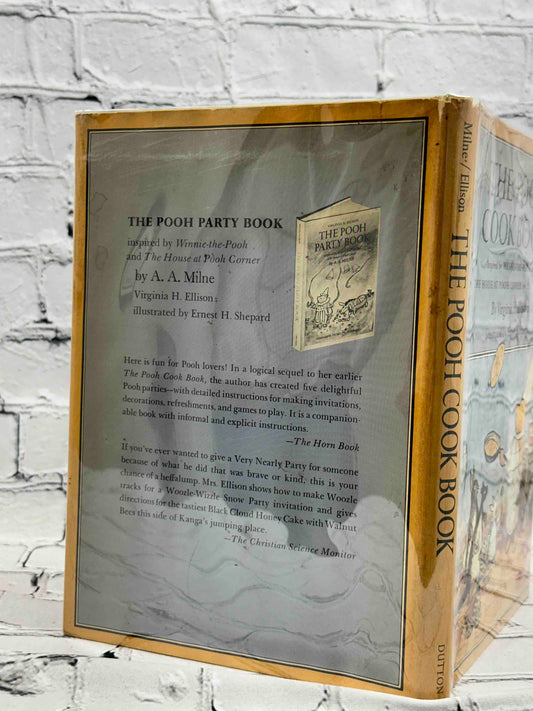 THE POOH PARTY BOOK
inspired by Winnie-the-Pooh
and The House at Pooh Corner
by A. A. Milne
Virginia H. Ellison
illustrated by Ernest H. Shepard
VIRGINIA H. ELLISON
THE POOH
PARTY BOOK
A. A. MILNE
Here is fun for Pooh lovers! In a logical sequel to her earlier
The Pooh Cook Book, the author has created five delightful
Pooh parties—with detailed instructions for making invitations,
decorations, refreshments, and games to play. It is a companion-
able book with informal and explicit instructions.
—The Horn Book
If you've ever wanted to give a Very Nearly Party for someone
because of what he did that was brave or kind, this is your
chance of a heffalump. Mrs. Ellison shows how to make Woozle
tracks for a Woozle-Wizzle Snow Party invitation and gives
directions for the tastiest Black Cloud Honey Cake with Walnut
Bees this side of Kanga's jumping place.
—The Christian Science Monitor
Milne / Ellison
THE POOH COOK BOOK
DUTTON
THE
COOK